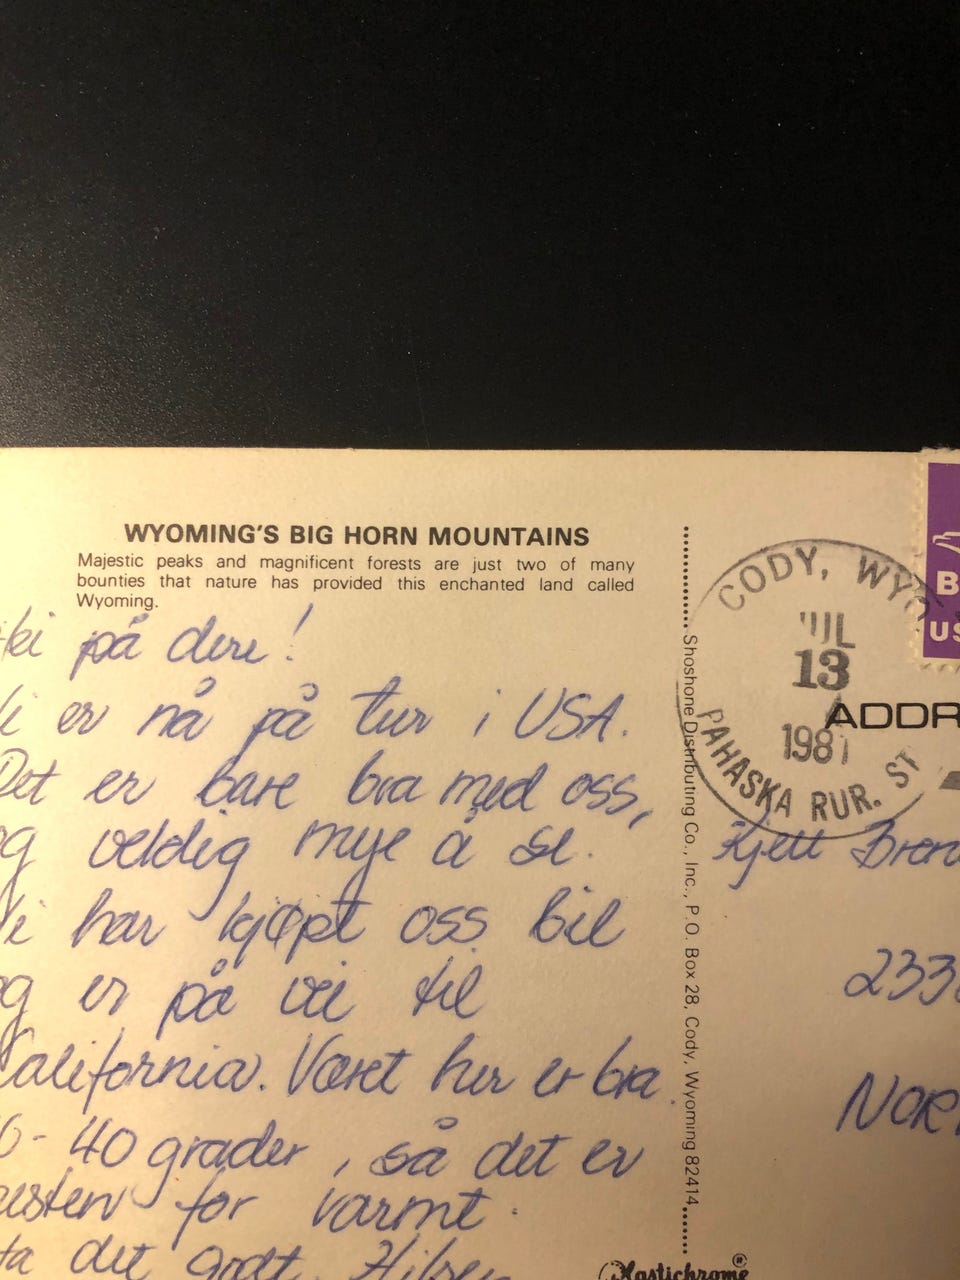 WYOMING'S BIG HORN MOUNTAINS
Majestic peaks and magnificent forests are just two of many
bounties that nature has provided this enchanted land called
Wyoming.
Hei på dere!
Vi er nå på tur i USA.
Det er bare bra med oss,
og veldig mye å se.
Vi har kjøpt oss bil
og er på vei til
California. Været her er bra.
0-40 grader, så det er
nesten for varmt.
ta det godt. Hilsen
Shoshone Distributing Co., Inc., P.O. Box 28, Cody, Wyoming 82414
CODY, WYO
JUL
13
1981
PAHASKA RUR. ST
B
US
ADDR
Kjell Bren
233
NOR
Plastichrome®